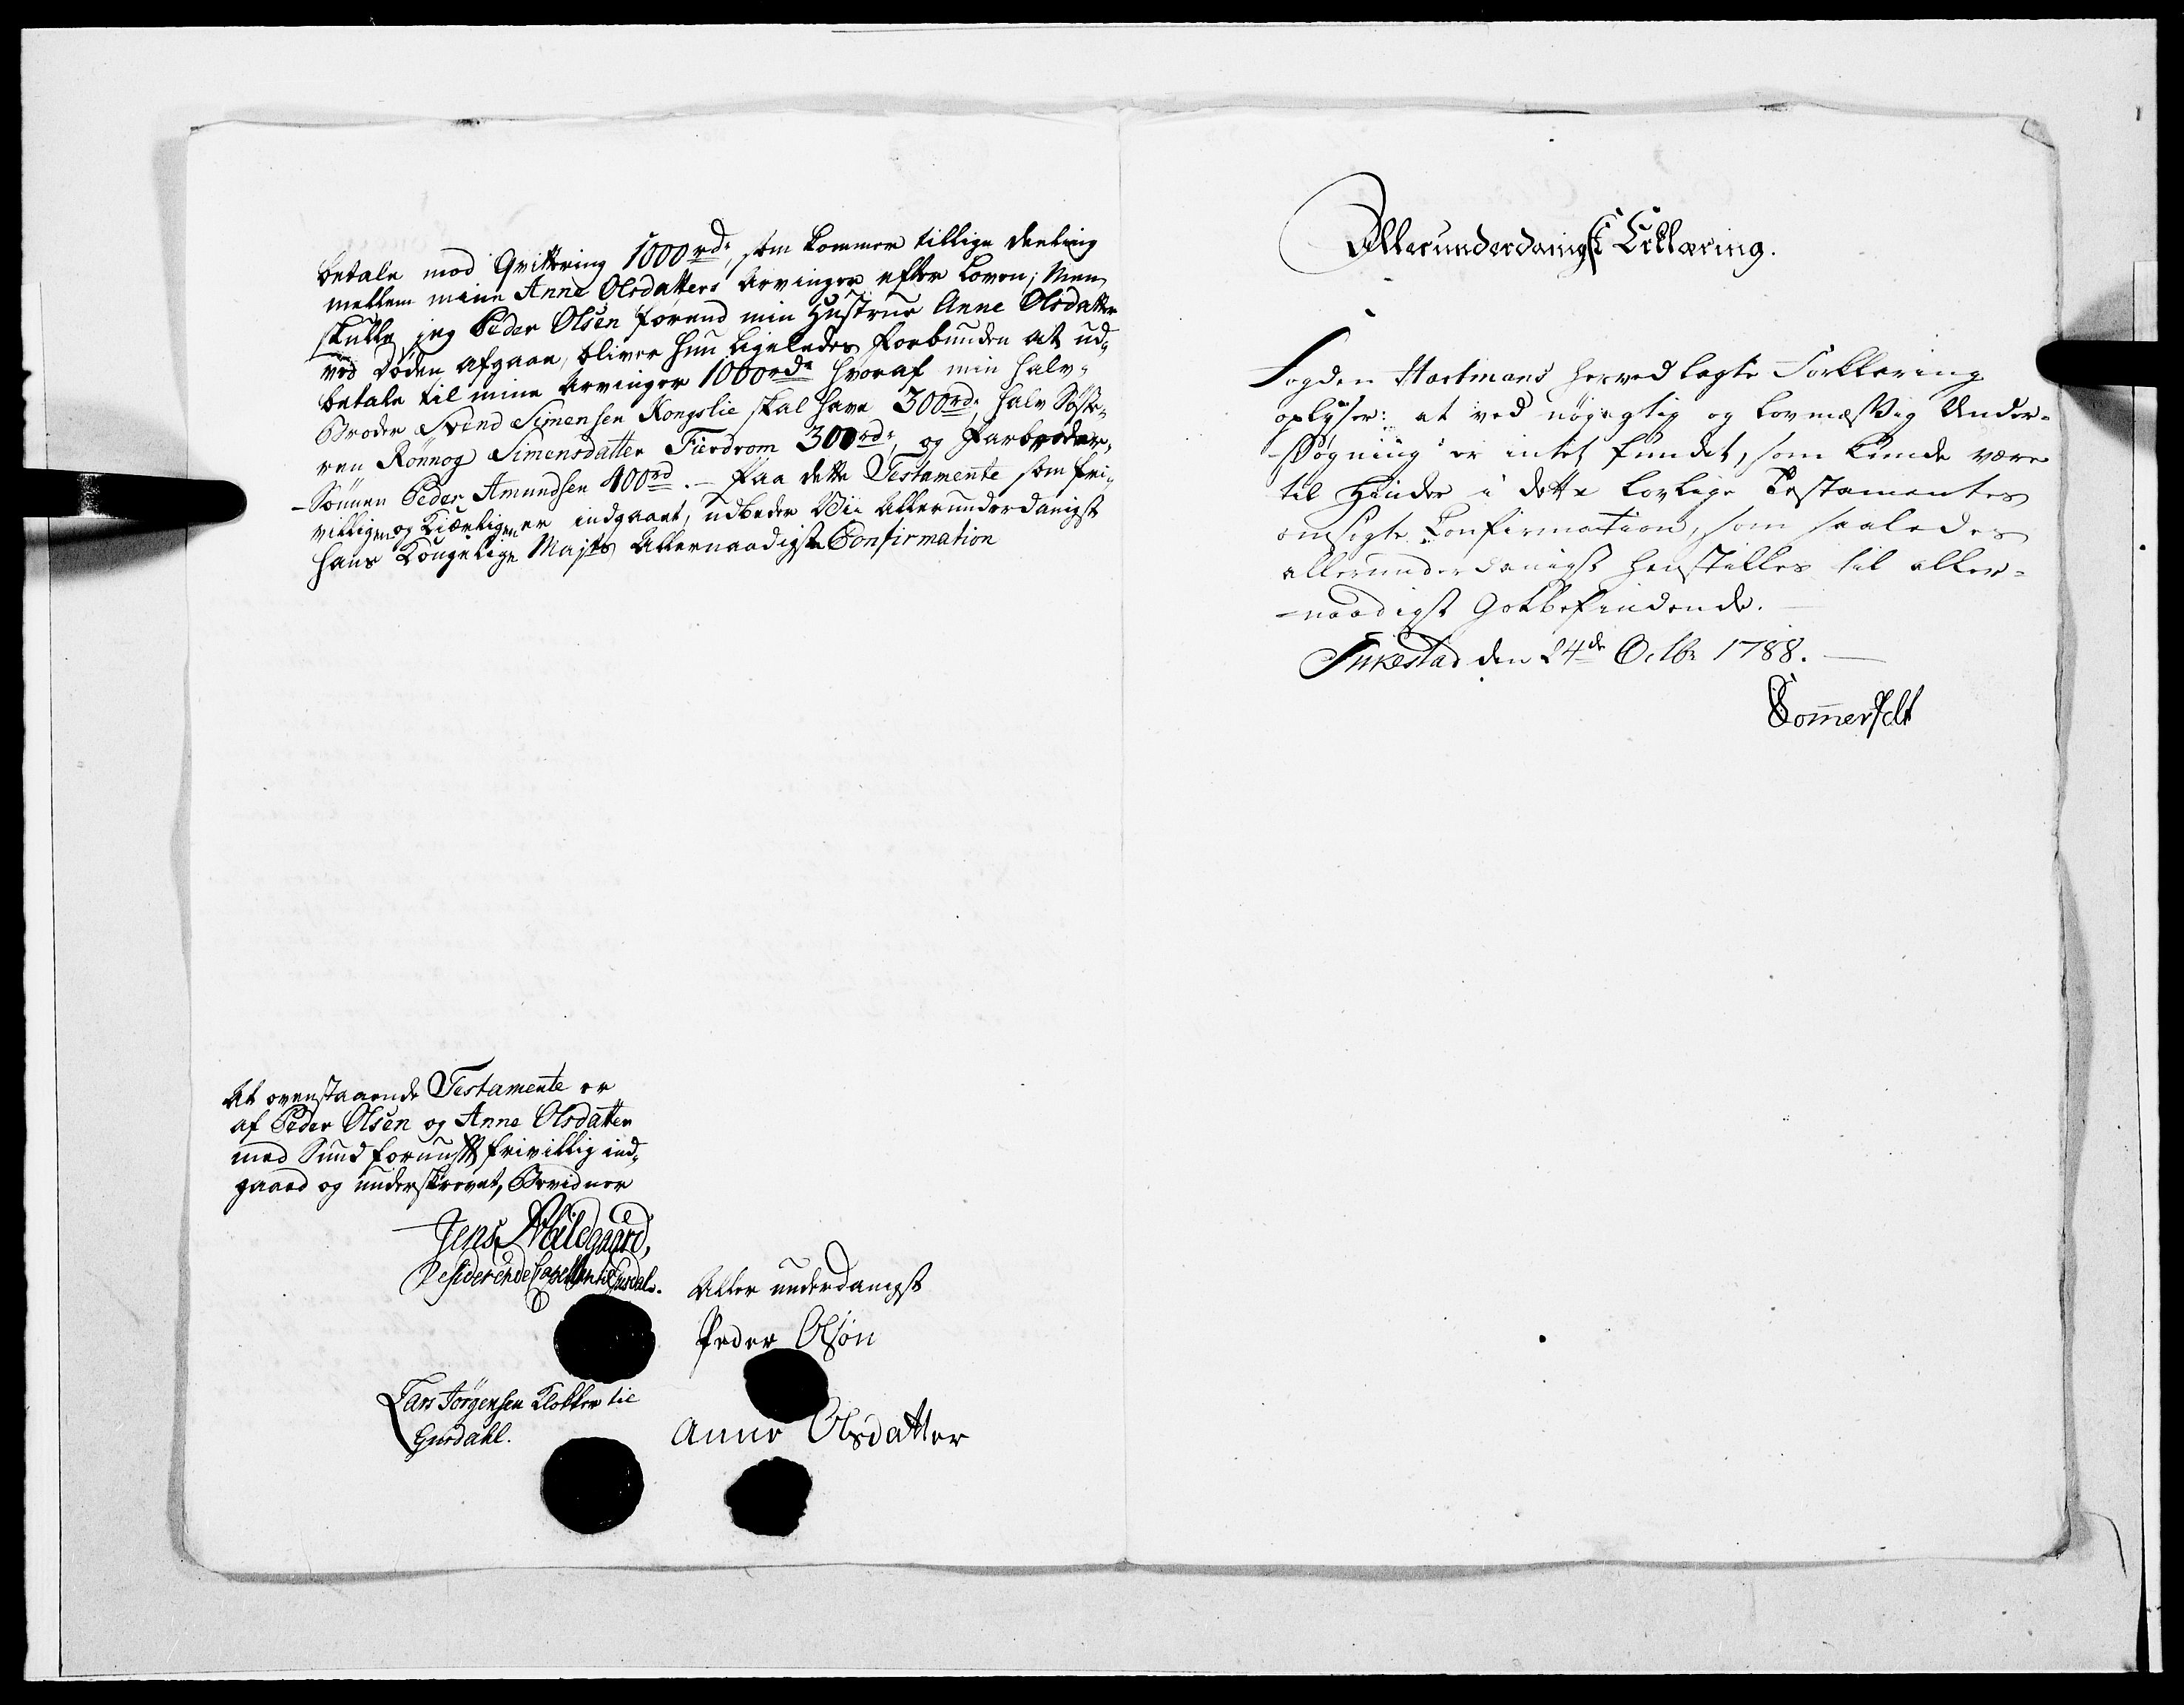 betale mod Qvittering 1000 rd:, som kommer tillige deeling
mellem mine Anne Olsdatters Arvinger efter Loven; Men
skulle jeg Peder Olsen forend min Hustrue Anne Olsdatter
ved Døden afgaae, bliver hun ligeledes forbunden at ud-
betale til mine Arvinger 1000 rdr hvoraf min halv-
Broder Svend Simensen Kongslie skal have 300 rdr, halv Søste-
ren Rönnog Simensdatter Fierdrom 300 rdr, og Farbroder-
-Sønnen Peder Amundsen 400 rd. - Paa dette Testamente som fri-
villigen og Kiærligen er indgaaet, udbeder Wii Allerunderdanigst
Hans Kongelige Majts Allernaadigste Confirmation
At ovenstaaende Testamente er
af Peder Olsen og Anne Olsdatter
med Sund fornuft frivillig ind-
gaaed og underskrevet, Bevidner
Jens Abildgaard,
Residerende Capellan til Gusdal.
Lars Jörgensen Klokker til
Gusdahl.
Aller underdanigst
Peder Olsøn
Anne Olsdatter
Allerunderdanigst Erklæring.
Fogden Hartmans herved lagte Forklaring
oplyser: at ved nøyagtig og lovmæssig Under-
-søgning er intet fundet, som kunde være
til Hinder i dette lovlige Testamentes
ansøgte Confirmation, som saaledes
allerunderdanigst henstilles til aller-
-naadigst Gotbefindende.
Sukestad den 24de Octbr 1788.
Sommerfelt